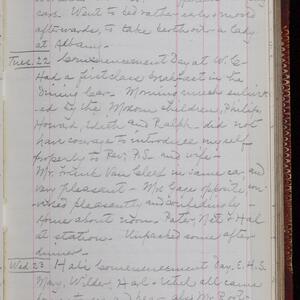 cars. Went to bed rather early moved
afterwards, to take berth with a lady
at Albany.
Tues. 22 Commencement Day at W. C.
Had a first class breakfast in the
Dining Car. Morning much enliven-
ed by the Moxom children, Philip,
Howard, Edith and Ralph - did not
have courage to introduce myself
properly to Rev. P.S. and wife -
Mr. Frank Van Cleef in same car and
very pleasant - Mrs. Case opposite con-
versed pleasantly and
home about noon. Pater, M & F. Hal
at station. Unpacked some after
dinner.
Wed 23 Hal's Commencement Day. E.H.S.
May, Wilder, Hal - Ethel all came